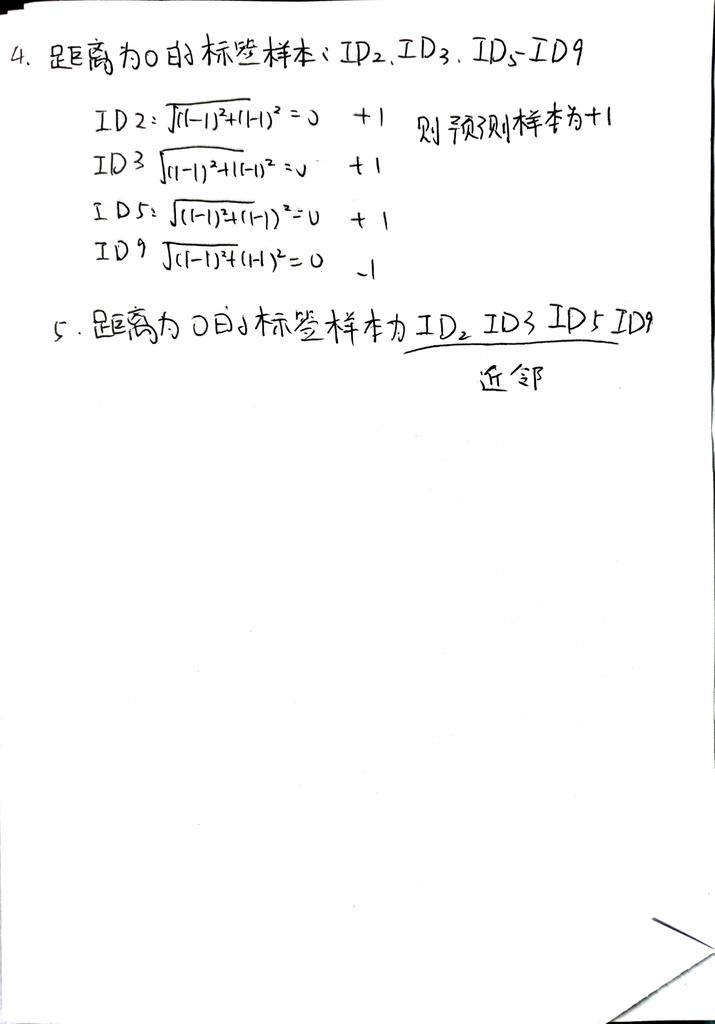 4. 距离为0的标签样本: ID2、ID3、ID5-ID9
ID2: √(1-1)²+(1-1)² = 0 +1 则预测样本为+1
ID3 √(1-1)²+(1-1)² = 0 +1
ID5: √(1-1)²+(1-1)² = 0 +1
ID9 √(1-1)²+(1-1)² = 0 -1
5. 距离为0的标签样本为ID2 ID3 ID5 ID9
近邻